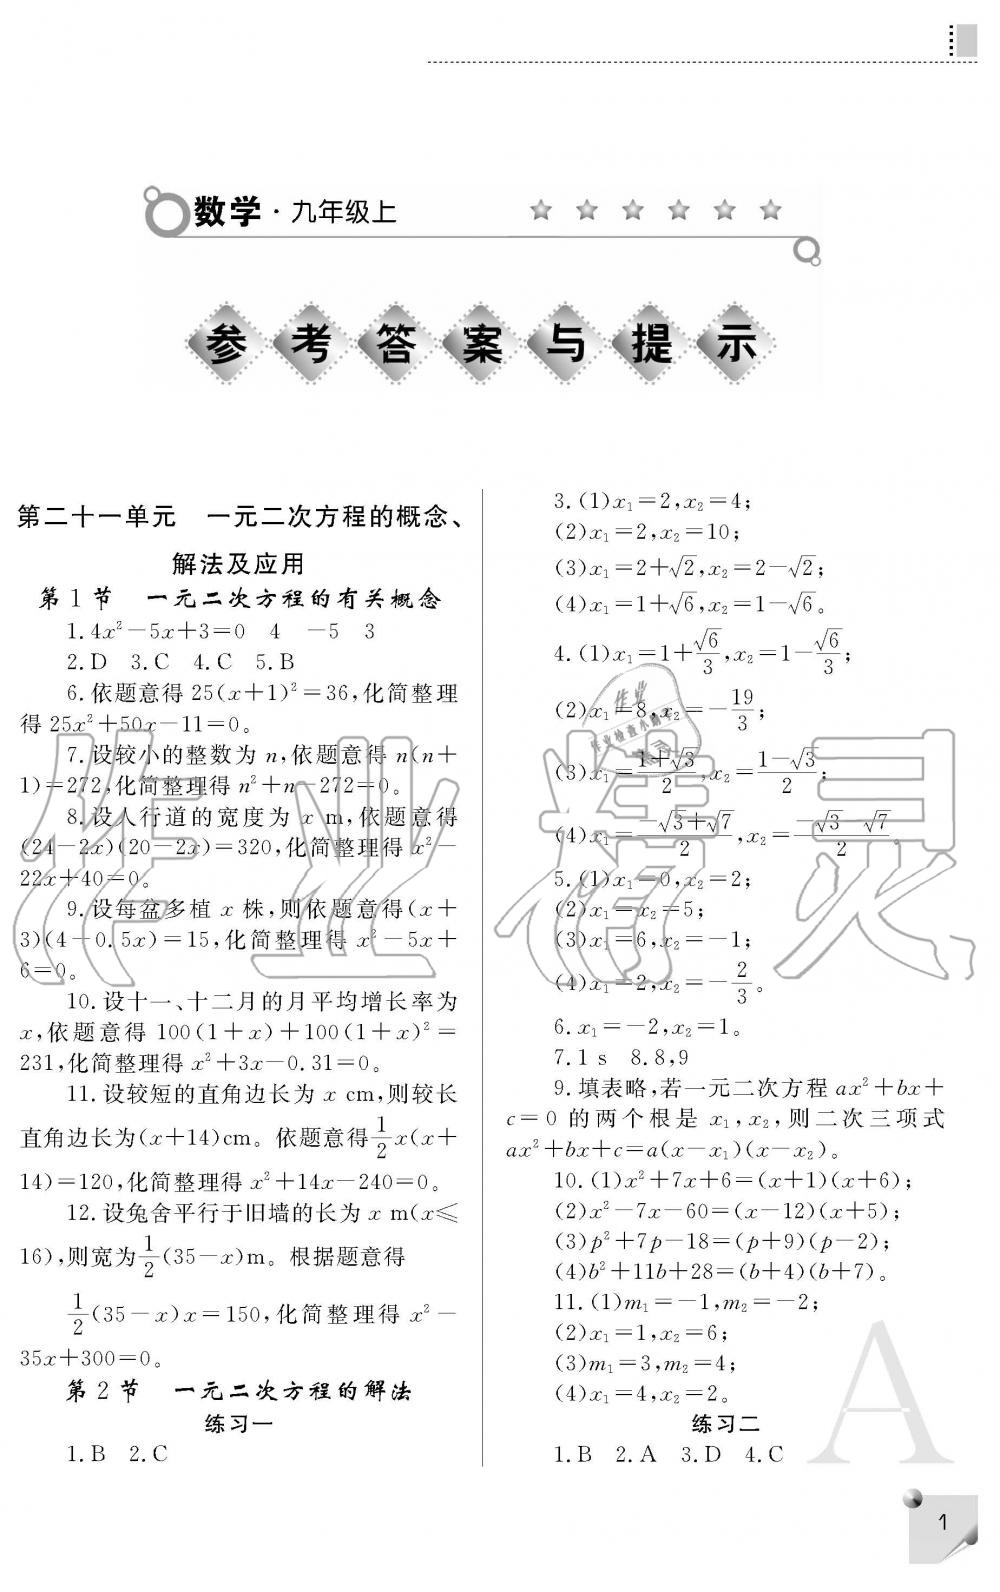 数学·九年级上
参考答案与提示
第二十一单元 一元二次方程的概念、
解法及应用
第1节 一元二次方程的有关概念
1.4x²－5x＋3＝0 4 －5 3
2.D 3.C 4.C 5.B
6.依题意得25(x＋1)²＝36,化简整理
得25x²＋50x－11＝0。
7.设较小的整数为n,依题意得n(n＋
1)＝272,化简整理得n²＋n－272＝0。
8.设人行道的宽度为x m,依题意得
(24－2x)(20－2x)＝320,化简整理得x²－
22x＋40＝0。
9.设每盆多植x株,则依题意得(x＋
3)(4－0.5x)＝15,化简整理得x²－5x＋
6＝0。
10.设十一、十二月的月平均增长率为
x,依题意得100(1＋x)＋100(1＋x)²＝
231,化简整理得x²＋3x－0.31＝0。
11.设较短的直角边长为x cm,则较长
直角边长为(x＋14)cm。依题意得1/2x(x＋
14)＝120,化简整理得x²＋14x－240＝0。
12.设兔舍平行于旧墙的长为x m(x≤
16),则宽为1/2(35－x)m。根据题意得
1/2(35－x)x＝150,化简整理得x²－
35x＋300＝0。
第2节 一元二次方程的解法
练习一
1.B 2.C
3.(1)x₁＝2,x₂＝4;
(2)x₁＝2,x₂＝10;
(3)x₁＝2＋√2,x₂＝2－√2;
(4)x₁＝1＋√6,x₂＝1－√6。
4.(1)x₁＝1＋√6/3,x₂＝1－√6/3;
(2)x₁＝8,x₂＝－19/3;
(3)x₁＝(1＋√3)/2,x₂＝(1－√3)/2;
(4)x₁＝(－√3＋√7)/2,x₂＝(－√3－√7)/2。
5.(1)x₁＝0,x₂＝2;
(2)x₁＝x₂＝5;
(3)x₁＝6,x₂＝－1;
(4)x₁＝2,x₂＝－2/3。
6.x₁＝－2,x₂＝1。
7.1 s 8.8,9
9.填表略,若一元二次方程ax²＋bx＋
c＝0的两个根是x₁,x₂,则二次三项式
ax²＋bx＋c＝a(x－x₁)(x－x₂)。
10.(1)x²＋7x＋6＝(x＋1)(x＋6);
(2)x²－7x－60＝(x－12)(x＋5);
(3)p²＋7p－18＝(p＋9)(p－2);
(4)b²＋11b＋28＝(b＋4)(b＋7)。
11.(1)m₁＝－1,m₂＝－2;
(2)x₁＝1,x₂＝6;
(3)m₁＝3,m₂＝4;
(4)x₁＝4,x₂＝2。
练习二
1.B 2.A 3.D 4.C
A
1
作业精灵
作业
作业检查小助手